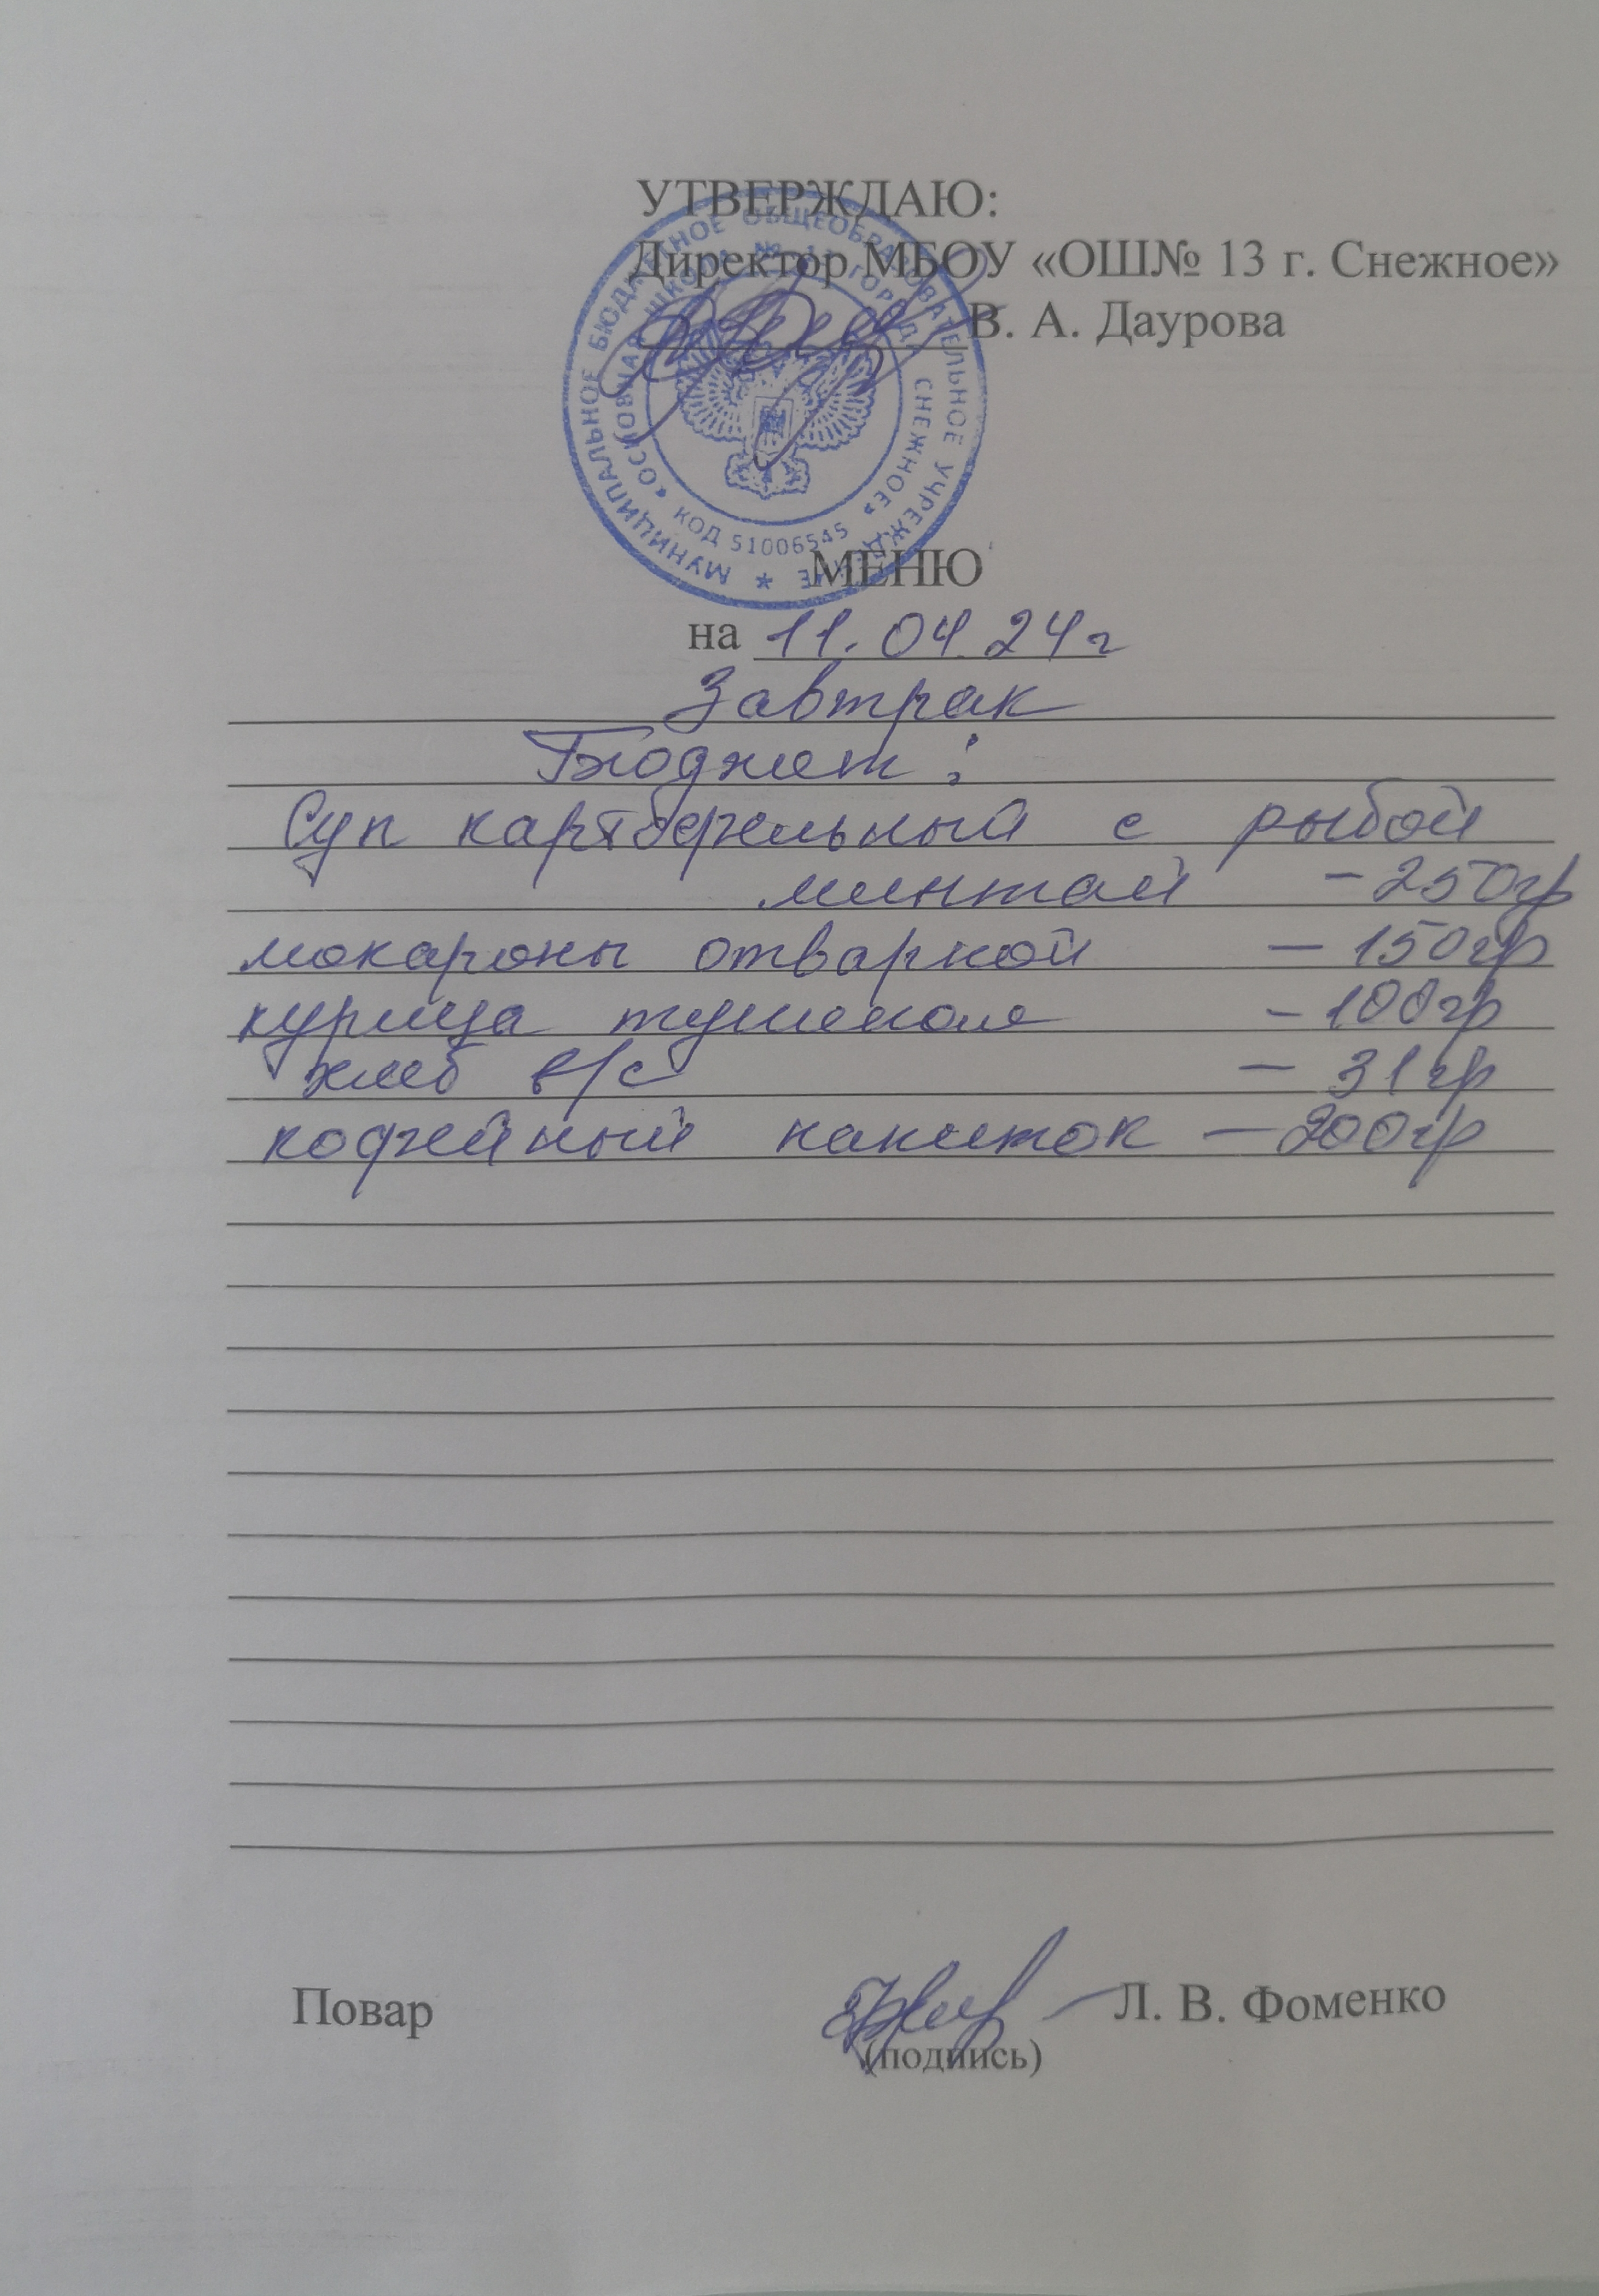 УТВЕРЖДАЮ:
Директор МБОУ «ОШ№ 13 г. Снежное»
В. А. Даурова
МУНИЦИПАЛЬНОЕ БЮДЖЕТНОЕ ОБЩЕОБРАЗОВАТЕЛЬНОЕ УЧРЕЖДЕНИЕ *
«ОСНОВНАЯ ШКОЛА № 13 ГОРОДА СНЕЖНОЕ»
КОД 51006545
МЕНЮ
на 11.04.24г
Завтрак
Бюджет:
Суп картофельный с рыбой
минтай - 250гр
мокароны отварной - 150гр
курица тушеноя - 100гр
хлеб в/с - 31гр
кофейный напиток - 200гр
Повар Л. В. Фоменко
(подпись)